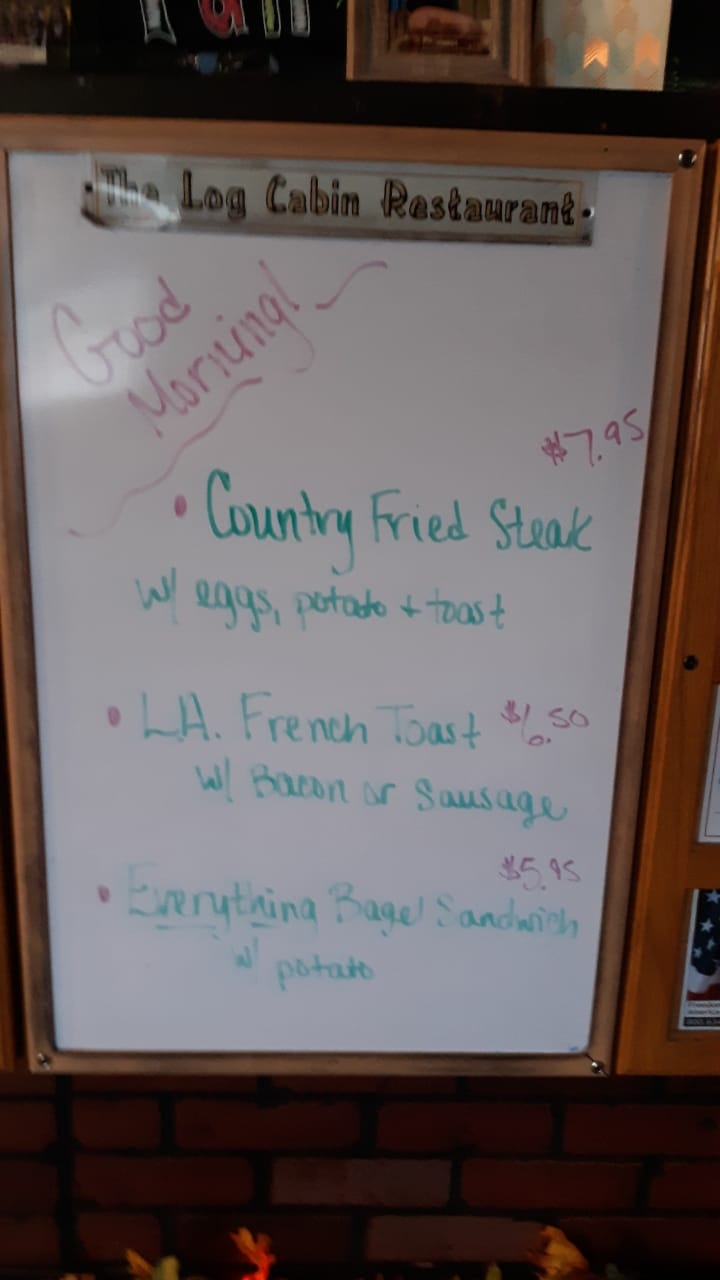 The Log Cabin Restaurant
Good
Morning!
$7.95
• Country Fried Steak
w/ eggs, potato + toast
• L.A. French Toast $6.50
w/ Bacon or Sausage
$5.95
• Everything Bagel Sandwich
w/ potato